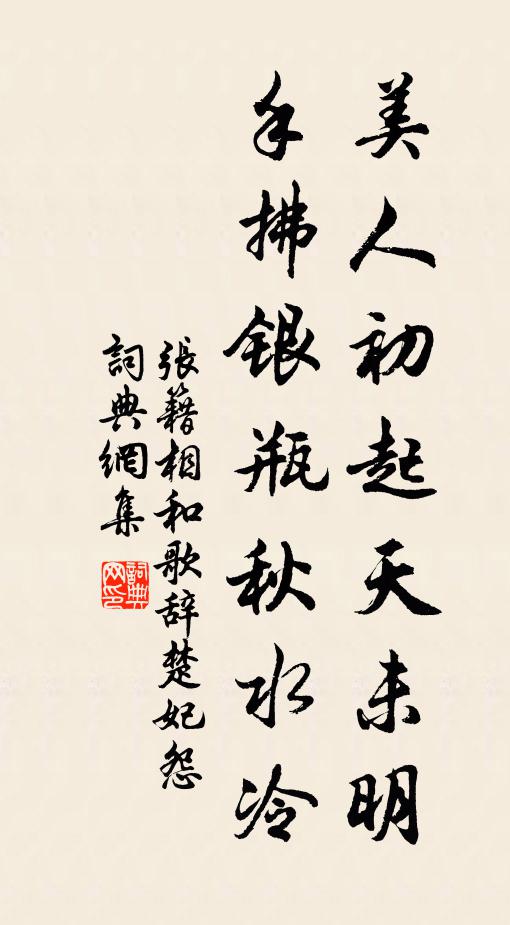 美人初起天未明
手拂银瓶秋水冷
張籍相和歌辞楚妃怨
詞典網集
詞典网印